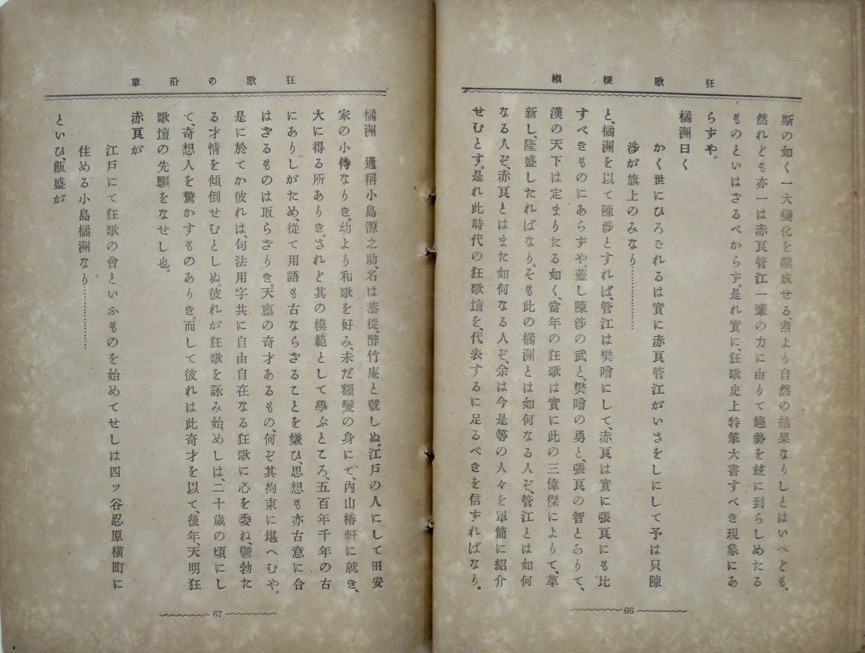 狂歌梗概
斯の如く一大變化を釀成せる、素より自然の結果なりしとはいへども、
然れども亦一は赤良管江一輩の力に由りて趨勢を玆に到らしめたる
ものといはざるべからず。是れ實に、狂歌史上特筆大書すべき現象にあ
らずや。
橘洲曰く
かく世にひろごれるは實に赤良管江がいさをしにして予は只陳
渉が旗上のみなり…………
と、橘洲を以て陳渉とすれば、管江は樊噲にして、赤良は實に張良にも比
すべきものにあらずや。蓋し陳渉の武と、樊噲の勇と、張良の智とありて、
漢の天下は定まりたる如く、當年の狂歌は實に此の三偉傑によりて、革
新し、隆盛したればなり。そも此の橘洲とは如何なる人ぞ、管江とは如何
なる人ぞ、赤良とはまた如何なる人ぞ、余は今是等の人々を單簡に紹介
せむとす。是れ此時代の狂歌壇を、代表するに足るべきを信ずればなり。
66
狂歌の沿革
橘洲　通稱小島源之助、名は恭從、醉竹庵と號しぬ。江戸の人にして田安
家の小侍なりき。幼より和歌を好み、未だ額髮の身にて、内山椿軒に就き、
大に得る所ありき。されど其の模範として學ぶところ、五百年千年の古
にありしがため、從て用語も古ならざることを嫌ひ、思想も亦古意に合
はざるものは取らざりき。天禀の奇才あるもの、何ぞ其拘束に堪へむや。
是に於てか彼れは、句法用字共に自由自在なる狂歌に心を委ね、鬱勃た
る才情を傾倒せむとしぬ。彼れが狂歌を詠み始めしは、二十歳の頃にし
て、奇想人を驚かすものありき。而して彼れは此奇才を以て、後年、天明狂
歌壇の先驅をなせし也。
赤良が
江戸にて狂歌の會といふものを始めてせしは四ッ谷忍原横町に
住める小島橘洲なり…………
といひ、飯盛が
67